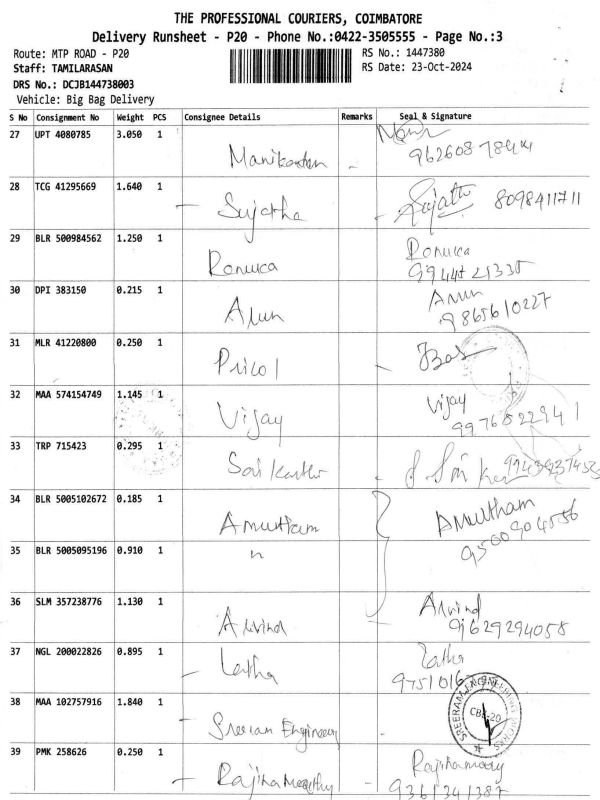 THE PROFESSIONAL COURIERS, COIMBATORE
Delivery Runsheet - P20 - Phone No.:0422-3505555 - Page No.:3
Route: MTP ROAD - P20 RS No.: 1447380
Staff: TAMILARASAN RS Date: 23-Oct-2024
DRS No.: DCJB144738003
Vehicle: Big Bag Delivery
S No Consignment No Weight PCS Consignee Details Remarks Seal & Signature
27 UPT 4080785 3.050 1 Manikandan
28 TCG 41295669 1.640 1 Sujatha Sujatha 8098411711
29 BLR 500984562 1.250 1 Renuca Renuca
30 DPI 383150 0.215 1 Arun Arun
9865610227
31 MLR 41220800 0.250 1 Pricol
32 MAA 574154749 1.145 1 Vijay Vijay
9976822941
33 TRP 715423 0.295 1
34 BLR 5005102672 0.185 1 Amutham Amutham
9500904556
35 BLR 5005095196 0.910 1 "
36 SLM 357238776 1.130 1 Arvind Arvind
9629294058
37 NGL 200022826 0.895 1 Latha Latha
38 MAA 102757916 1.840 1 Sreeram Engineering SREERAM ENGINEERING WORKS
CBE-20
39 PMK 258626 0.250 1 Rajinamurthy
9361341387